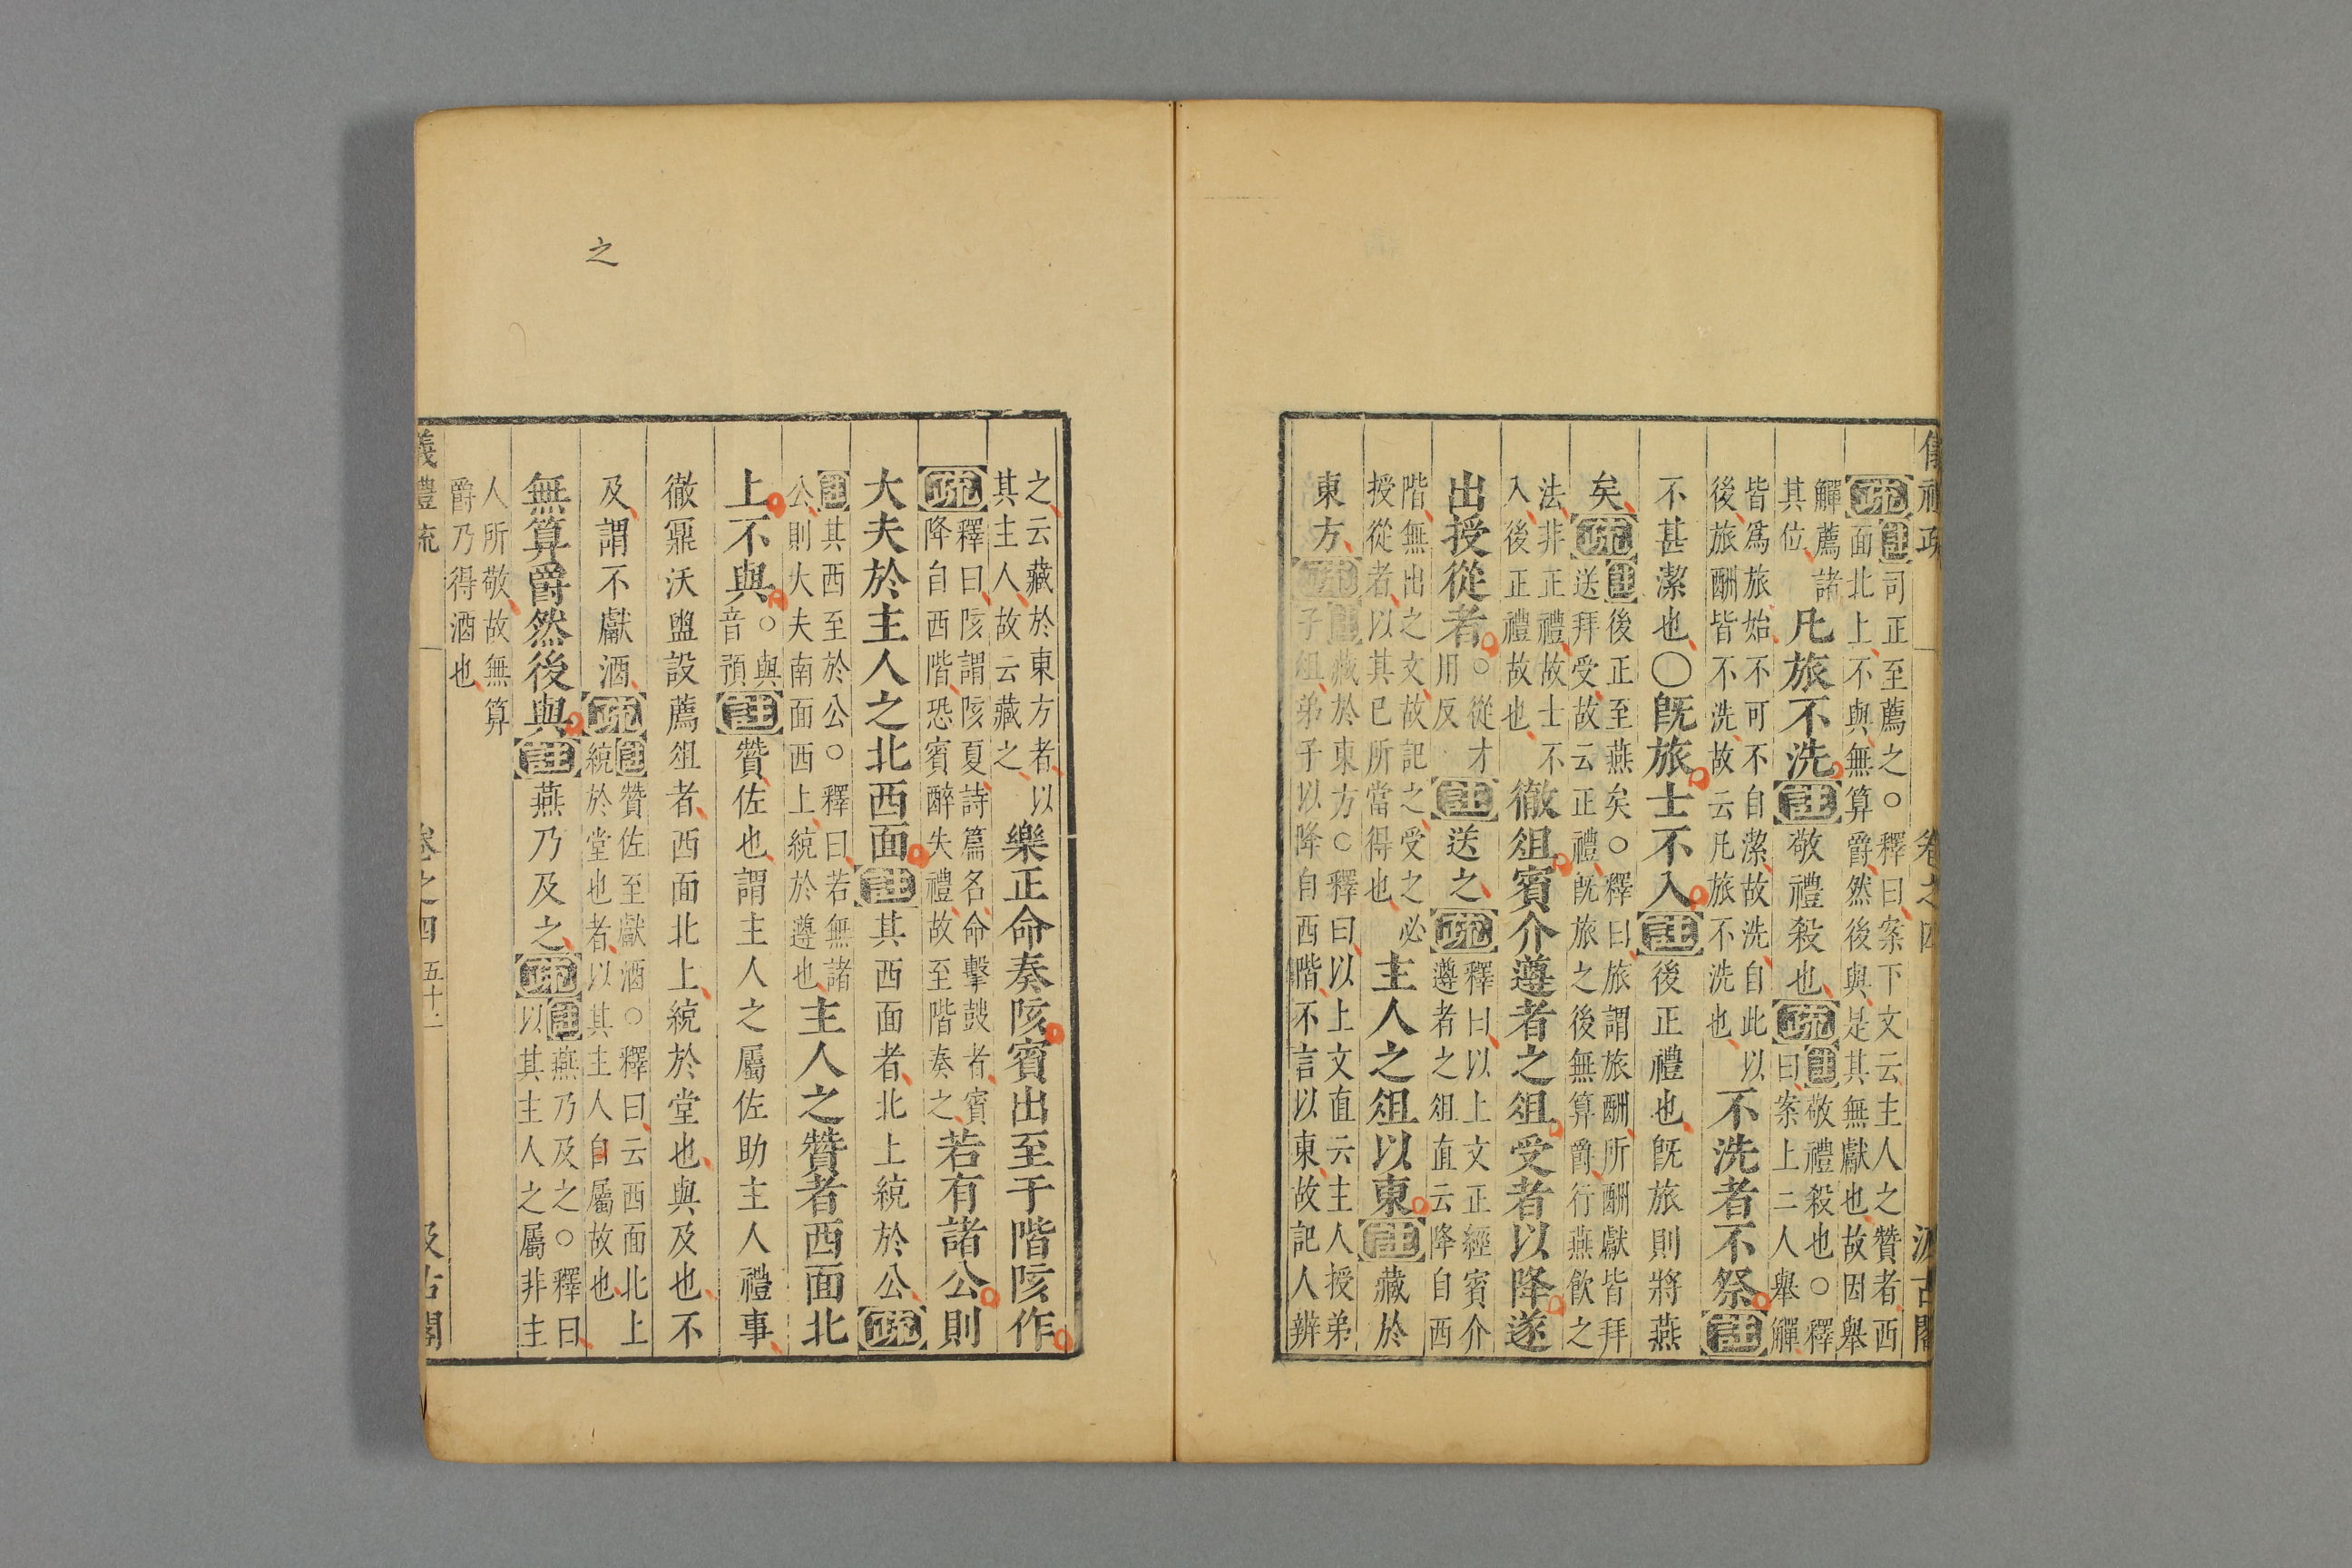 儀禮疏 卷之四 汲古閣
疏註司正至薦之○釋曰案下文云主人之贊者西
面北上不與無算爵然後與是其無獻也故因舉
觶薦諸
其位
凡旅不洗註敬禮殺也疏註敬禮殺也○釋
曰案上二人舉觶
皆爲旅始不可不自潔故洗自此以
後旅酬皆不洗故云凡旅不洗也
不洗者不祭註
不甚潔也〇旣旅士不入註後正禮也旣旅則將燕
矣疏註後正至燕矣○釋曰旅謂旅酬所酬獻皆拜
送拜受故云正禮旣旅之後無算爵行燕飲之
法非正禮故士不
入後正禮故也
徹俎賓介遵者之俎受者以降遂
出授從者○從才
用反
註送之疏釋曰以上文正經賓介
遵者之俎直云降自西
階無出之文故記之受之必
授從者以其已所當得也
主人之俎以東註藏於
東方疏註藏於東方○釋曰以上文直云主人授弟
子俎弟子以降自西階不言以東故記人辨
之云藏於東方者以
其主人故云藏之
樂正命奏陔賓出至于階陔作
疏釋曰陔謂陔夏詩篇名命擊鼓者賓
降自西階恐賓醉失禮故至階奏之
若有諸公則
大夫於主人之北西面註其西面者北上統於公疏
註其西至於公○釋曰若無諸
公則大夫南面西上統於遵也
主人之贊者西面北
上不與○與
音預
註贊佐也謂主人之屬佐助主人禮事
徹鼏沃盥設薦俎者西面北上統於堂也與及也不
及謂不獻酒疏註贊佐至獻酒○釋曰云西面北上
統於堂也者以其主人自屬故也
無算爵然後與註燕乃及之疏註燕乃及之○釋曰
以其主人之屬非主
人所敬故無算
爵乃得酒也
儀禮疏 卷之四 五十一 汲古閣
之